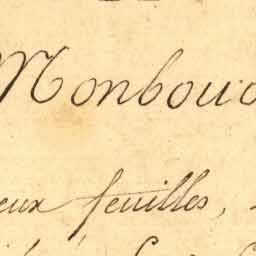 Monbouo
eux feuilles,